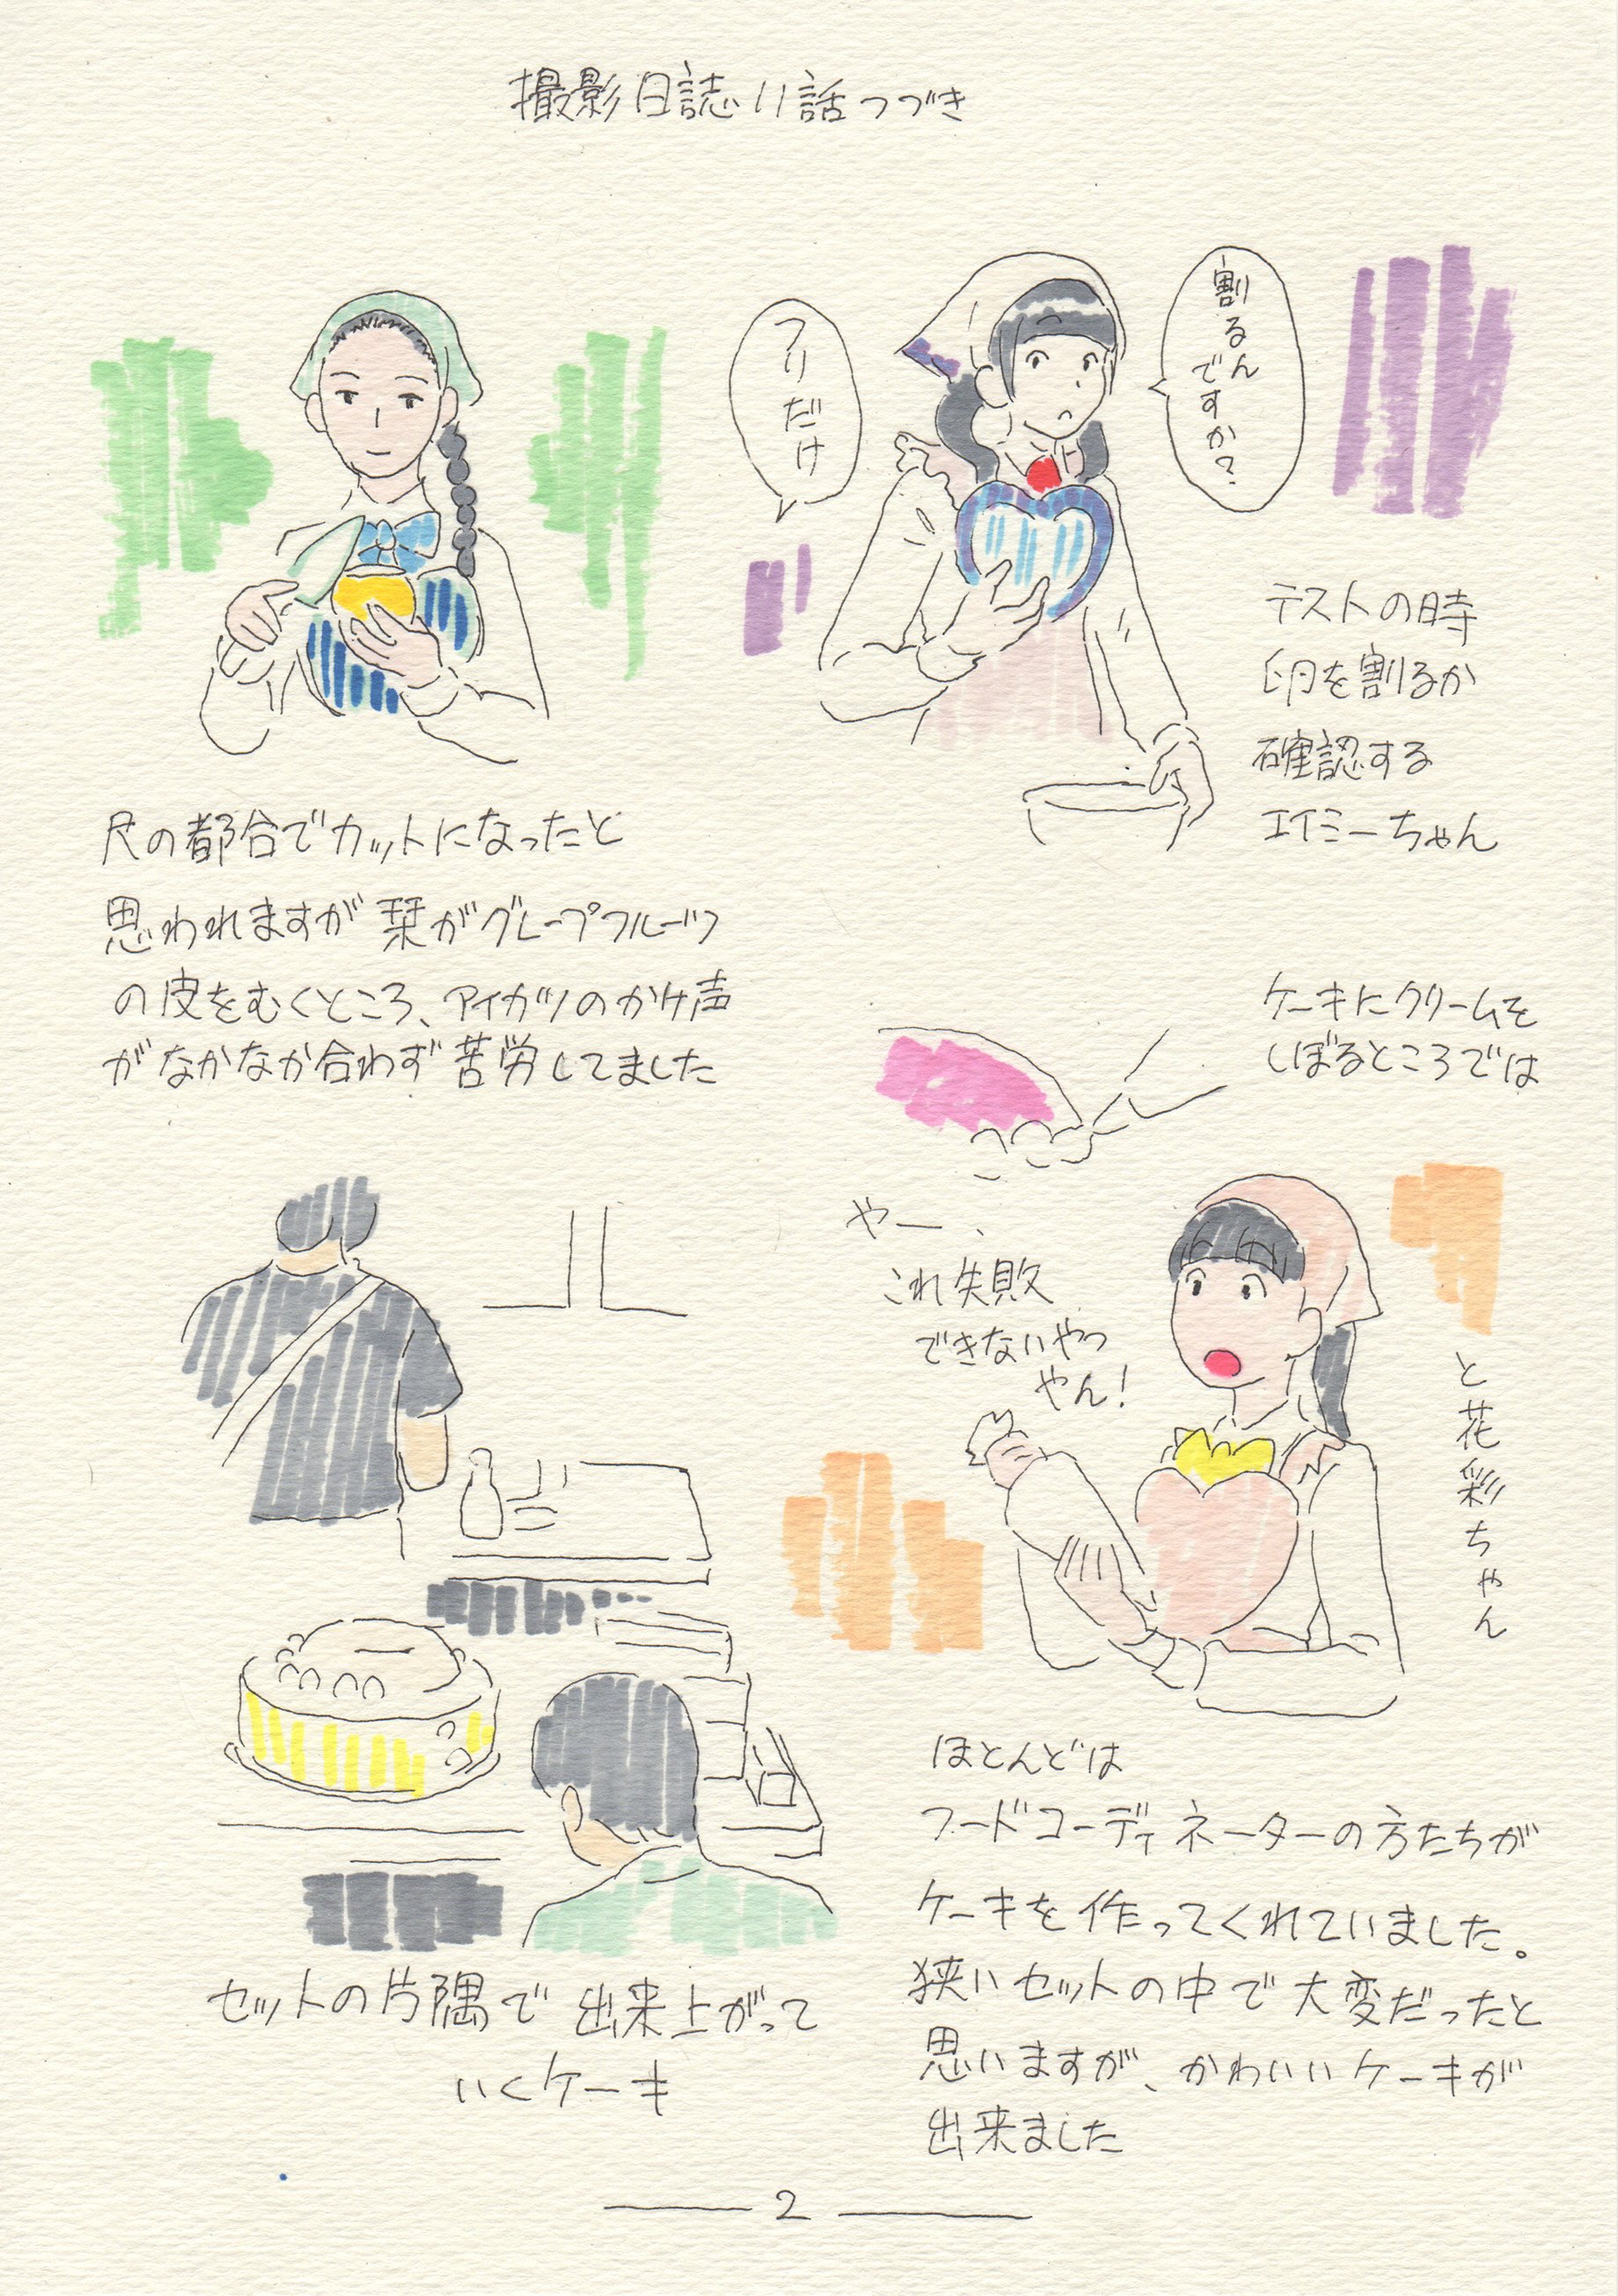 撮影日誌11話つづき
割るん
ですか?
フリだけ
テストの時
卵を割るか
確認する
エイミーちゃん
尺の都合でカットになったと
思われますが栞がグレープフルーツ
の皮をむくところ、アイカツのかけ声
がなかなか合わず苦労してました
ケーキにクリームを
しぼるところでは
やー、
これ失敗
できないやつ
やん!
と花彩ちゃん
ほとんどは
フードコーディネーターの方たちが
ケーキを作ってくれていました。
狭いセットの中で大変だったと
思いますが、かわいいケーキが
出来ました
セットの片隅で出来上がって
いくケーキ
2